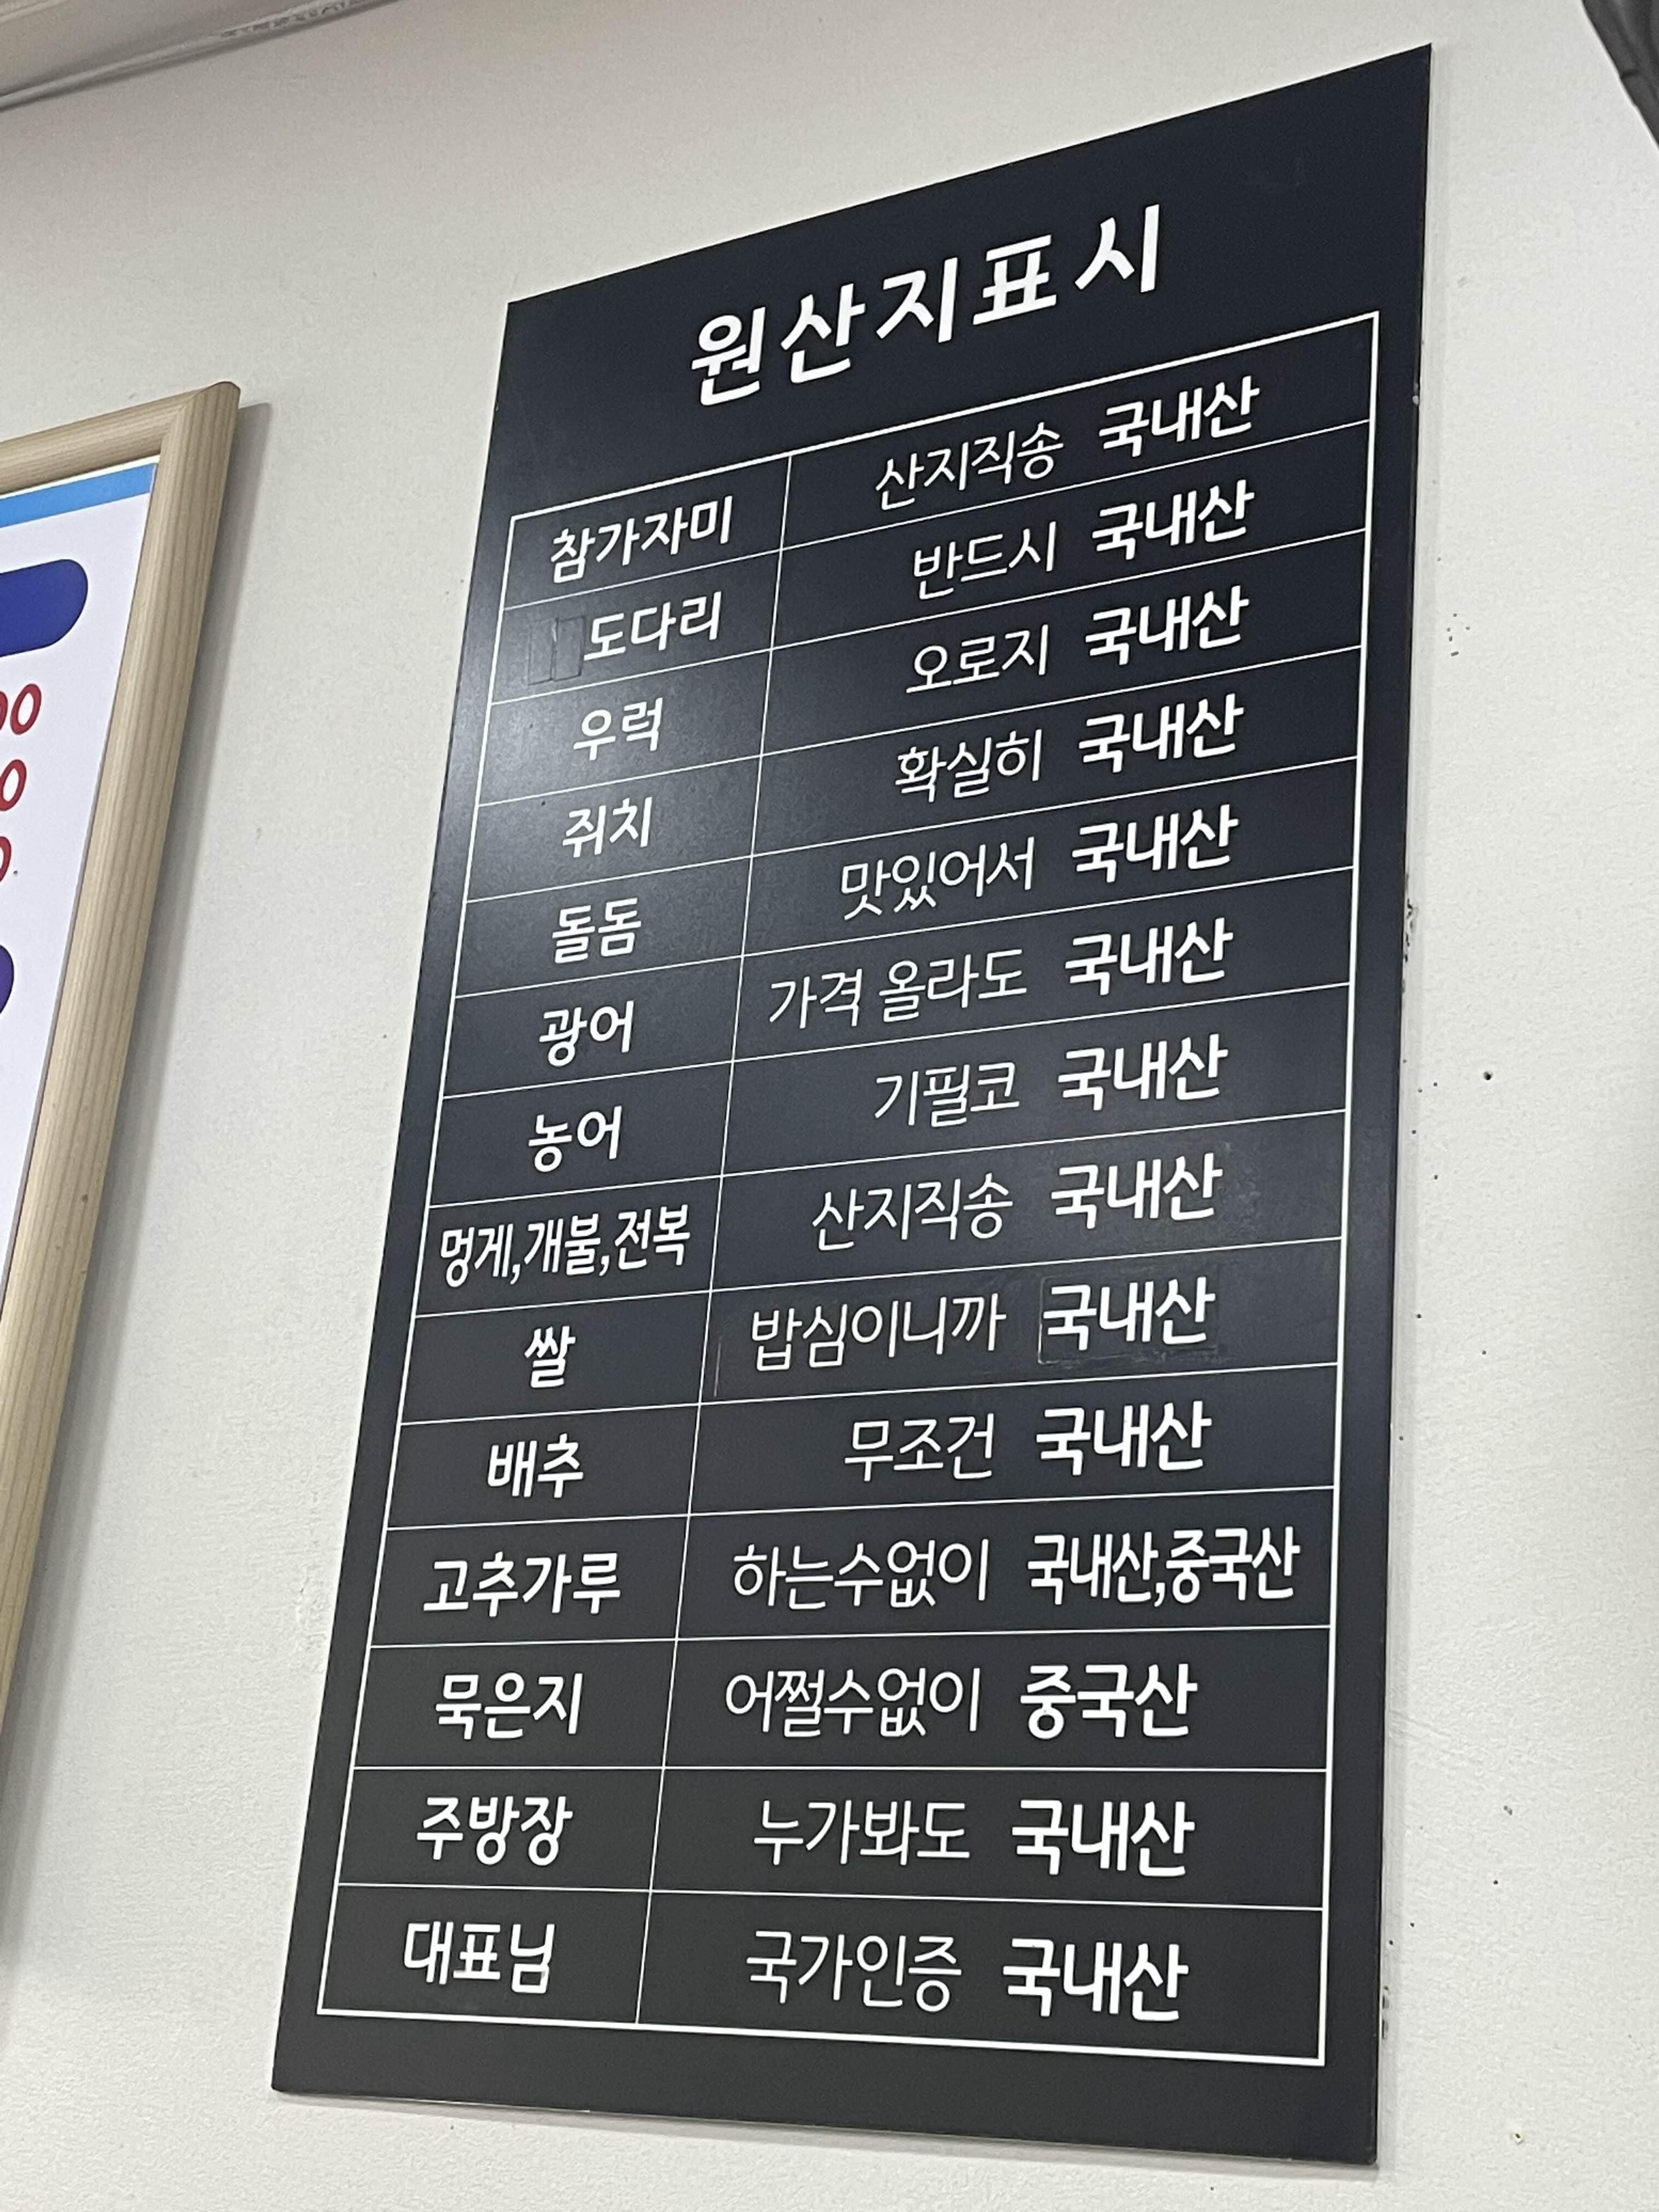 원산지표시
참가자미 산지직송 국내산
도다리 반드시 국내산
우럭 오로지 국내산
쥐치 확실히 국내산
돌돔 맛있어서 국내산
광어 가격 올라도 국내산
농어 기필코 국내산
멍게,개불,전복 산지직송 국내산
쌀 밥심이니까 국내산
배추 무조건 국내산
고추가루 하는수없이 국내산,중국산
묵은지 어쩔수없이 중국산
주방장 누가봐도 국내산
대표님 국가인증 국내산